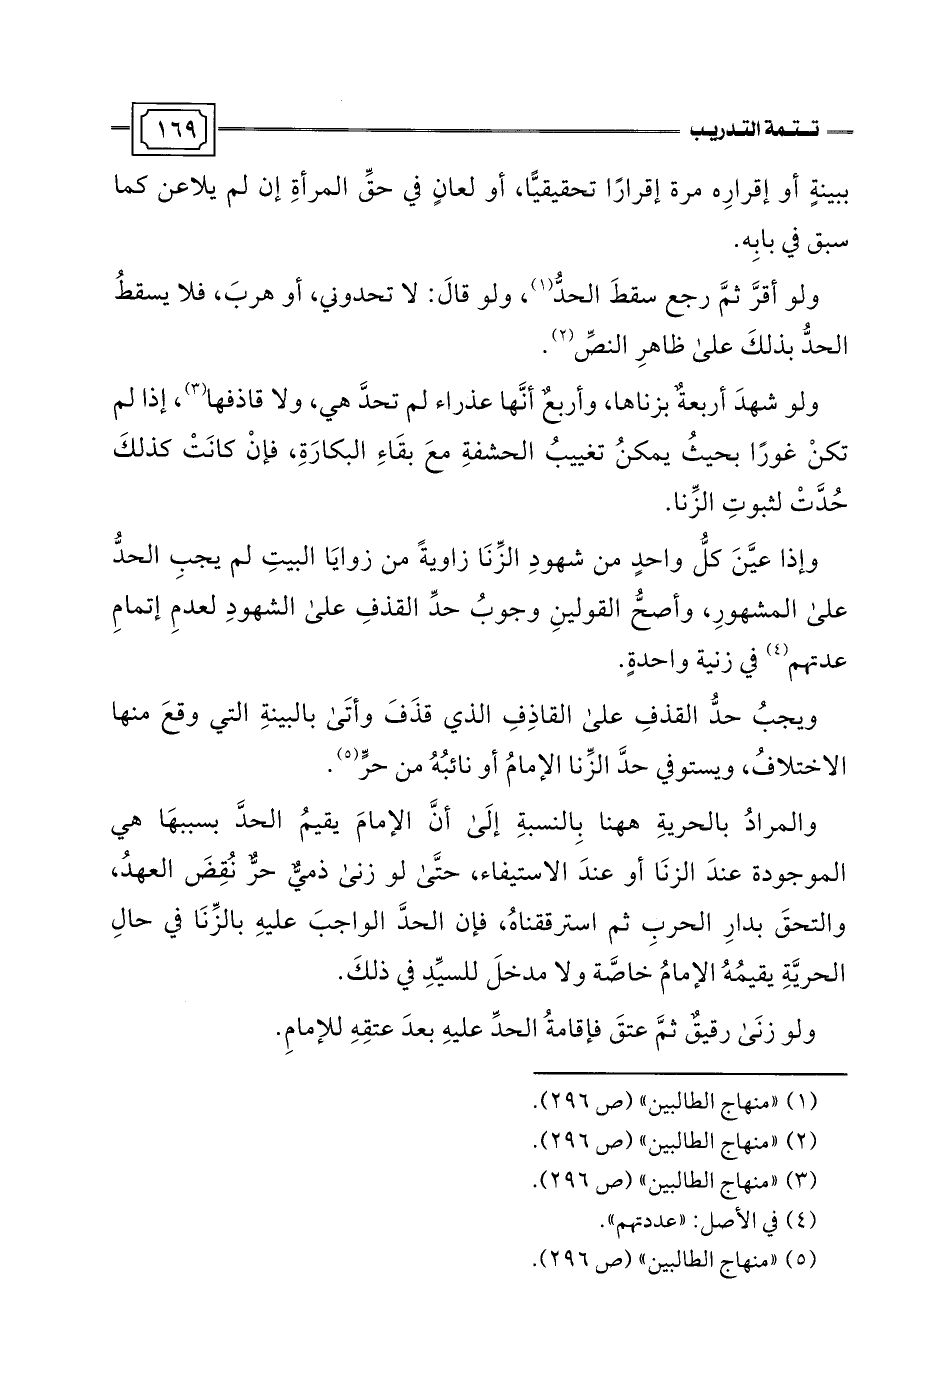 تتمة التدريب
١٦٩
ببينةٍ أو إقرارِه مرة إقرارًا تحقيقيًّا، أو لعانٍ في حقِّ المرأةِ إن لم يلاعن كما
سبق في بابِه.
ولو أقرَّ ثمَّ رجع سقطَ الحدُّ(١)، ولو قالَ: لا تحدوني، أو هربَ، فلا يسقطُ
الحدُّ بذلكَ علىٰ ظاهرِ النصِّ(٢).
ولو شهدَ أربعةٌ بزناها، وأربعٌ أنَّها عذراء لم تحدَّ هي، ولا قاذفها(٣)، إذا لم
تكنْ غورًا بحيثُ يمكنُ تغييبُ الحشفةِ معَ بقَاءِ البكارَةِ، فإنْ كانَتْ كذلكَ
حُدَّتْ لثبوتِ الزِّنا.
وإذا عيَّنَ كلُّ واحدٍ من شهودِ الزِّنَا زاويةً من زوايَا البيتِ لم يجبِ الحدُّ
علىٰ المشهورِ، وأصحُّ القولينِ وجوبُ حدِّ القذفِ علىٰ الشهودِ لعدمِ إتمامِ
عدتهم(٤) في زنية واحدةٍ.
ويجبُ حدُّ القذفِ علىٰ القاذِفِ الذي قذَفَ وأتَىٰ بالبينةِ التي وقعَ منها
الاختلافُ، ويستوفي حدَّ الزِّنا الإمامُ أو نائبُهُ من حرٍّ(٥).
والمرادُ بالحريةِ ههنا بِالنسبةِ إلَىٰ أنَّ الإمامَ يقيمُ الحدَّ بسببهَا هي
الموجودة عندَ الزنَا أو عندَ الاستيفاء، حتَّىٰ لو زنىٰ ذميٌّ حرٌّ نُقِضَ العهدُ،
والتحقَ بدارِ الحربِ ثم استرققناهُ، فإن الحدَّ الواجبَ عليهِ بالزِّنَا في حالِ
الحريَّةِ يقيمُهُ الإمامُ خاصَّة ولا مدخلَ للسيِّدِ في ذلكَ.
ولو زنَىٰ رقيقٌ ثمَّ عتقَ فإقامةُ الحدِّ عليهِ بعدَ عتقِهِ للإمامِ.
(١) «منهاج الطالبين» (ص ٢٩٦).
(٢) «منهاج الطالبين» (ص ٢٩٦).
(٣) «منهاج الطالبين» (ص ٢٩٦).
(٤) في الأصل: «عددتهم».
(٥) «منهاج الطالبين» (ص ٢٩٦).